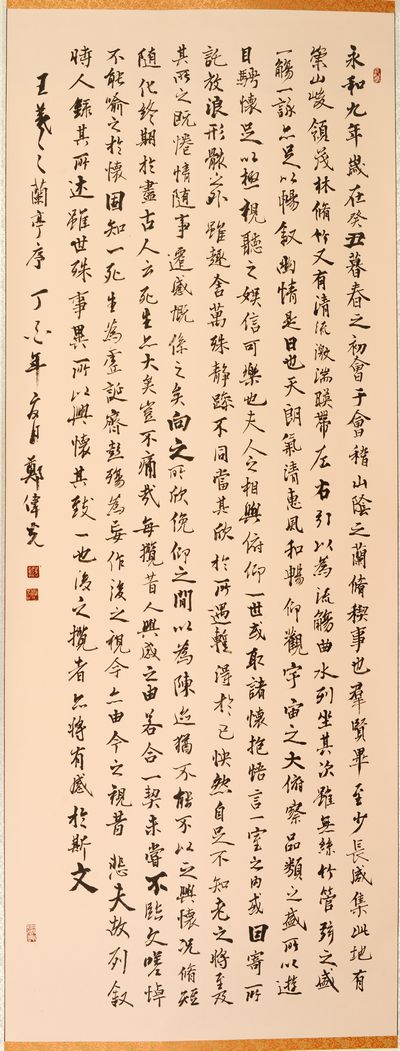 永和九年歲在癸丑暮春之初會于會稽山陰之蘭脩稧事也羣賢畢至少長咸集此地有
崇山峻領茂林脩竹又有清流激湍暎帶左右引以為流觴曲水列坐其次雖無絲竹管弦之盛
一觴一詠亦足以暢敘幽情是日也天朗氣清惠風和暢仰觀宇宙之大俯察品類之盛所以遊
目騁懷足以極視聽之娛信可樂也夫人之相與俯仰一世或取諸懷抱悟言一室之內或因寄所
託放浪形骸之外雖趣舍萬殊靜躁不同當其欣於所遇暫得於己怏然自足不知老之將至及
其所之既惓情隨事遷感慨係之矣向之所欣俛仰之間以為陳迹猶不能不以之興懷況脩短
隨化終期於盡古人云死生亦大矣豈不痛哉每攬昔人興感之由若合一契未嘗不臨文嗟悼
不能喻之於懷固知一死生為虛誕齊彭殤為妄作後之視今亦由今之視昔悲夫故列敘
時人錄其所述雖世殊事異所以興懷其致一也後之攬者亦將有感於斯文
王羲之蘭亭序 丁亥年夏月 鄭偉光